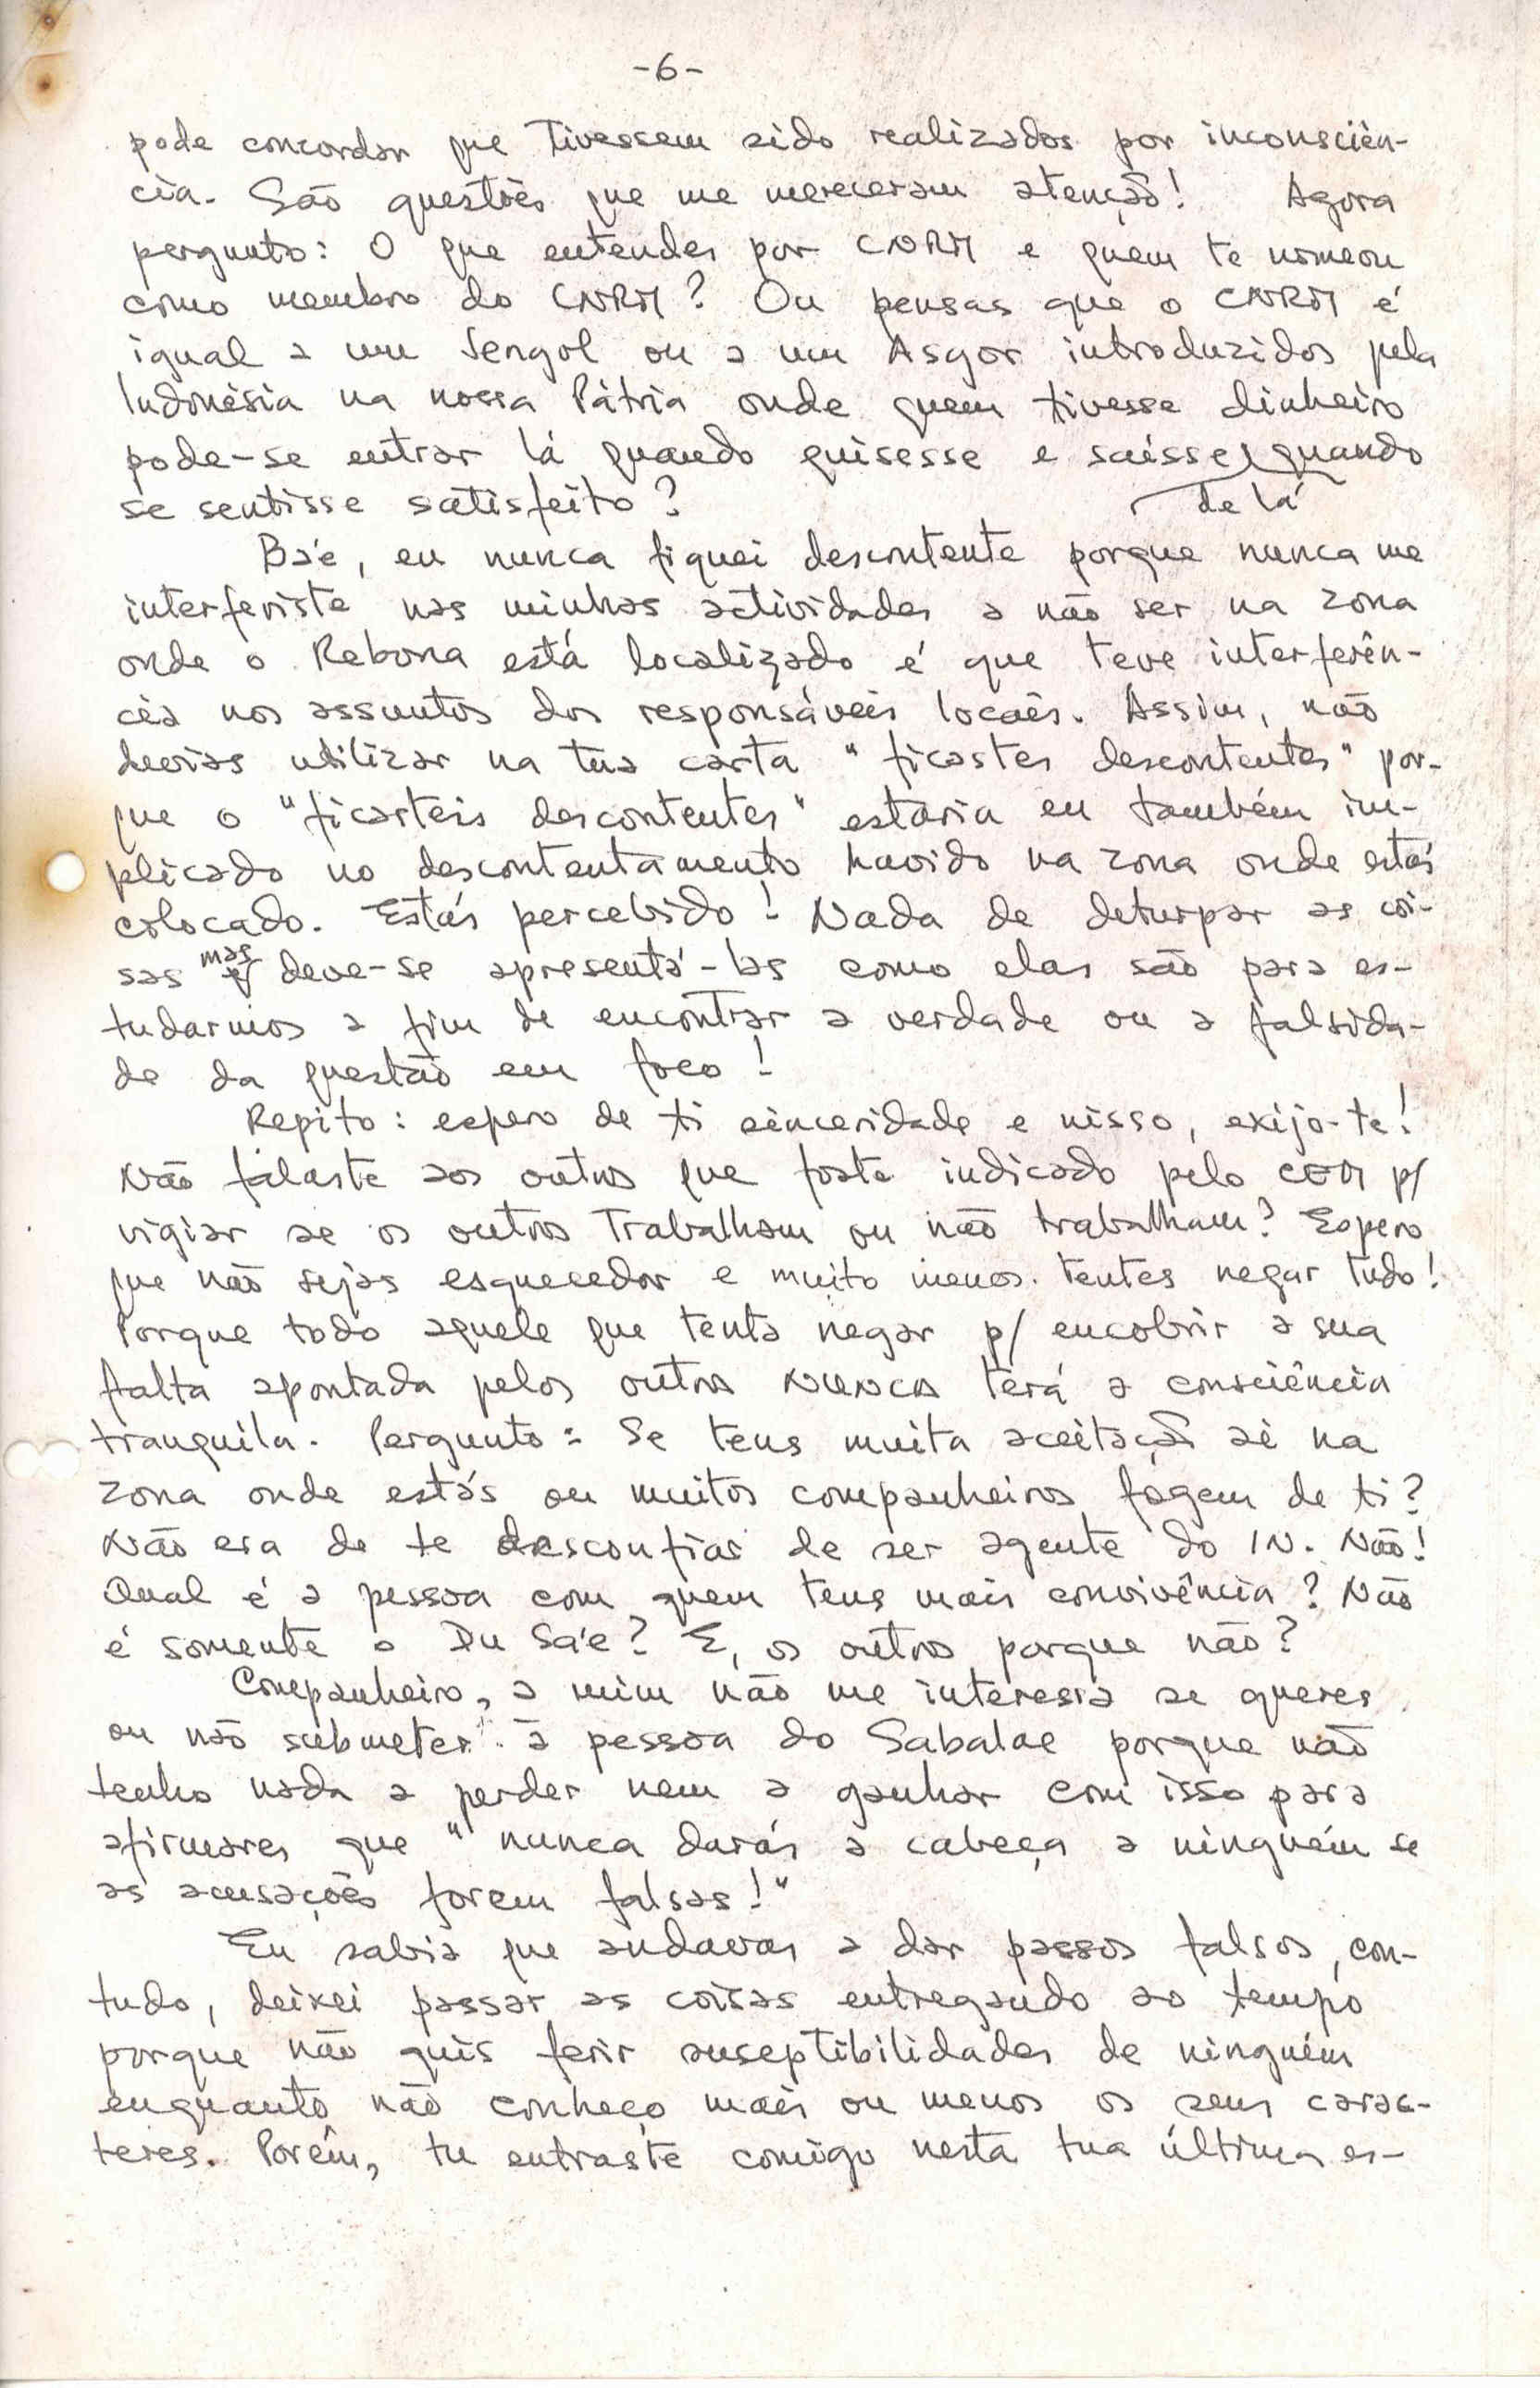 -6-
pode concordar que tivessem sido realizados por inconsciên-
cia. São questões que me mereceram atenção! Agora
pergunto: O que entendes por CNRM e quem te nomeou
como membro do CNRM? Ou pensas que o CNRM é
igual a um Sengol ou a um Asgor introduzidos pela
Indonésia na nossa Pátria onde quem tivesse dinheiro
pode-se entrar lá quando quisesse e saísse quando
de lá
se sentisse satisfeito?
Ba'e, eu nunca fiquei descontente porque nunca me
interferiste nas minhas actividades a não ser na zona
onde o Rebona está localizado é que teve interferên-
cia nos assuntos dos responsáveis locais. Assim, não
devias utilizar na tua carta "ficastes descontentes" por-
que o "ficasteis descontentes" estaria eu também im-
plicado no descontentamento havido na zona onde estás
colocado. Estás percebido! Nada de deturpar as coi-
sas mas deve-se apresentá-las como elas são para es-
tudarmos a fim de encontrar a verdade ou a falsida-
de da questão em foco!
Repito: espero de ti sinceridade e nisso, exijo-te!
Não falaste aos outros que foste indicado pelo CEM p/
vigiar se os outros trabalham ou não trabalham? Espero
que não sejas esquecedor e muito menos tentes negar tudo!
Porque todo aquele que tenta negar p/ encobrir a sua
falta apontada pelos outros NUNCA terá a consciência
tranquila. Pergunto: Se tens muita aceitação aí na
zona onde estás ou muitos companheiros fogem de ti?
Não era de te desconfiar de ser agente do IN. Não!
Qual é a pessoa com quem tens mais convivência? Não
é somente o Du Sa'e? E, os outros porque não?
Companheiro, a mim não me interessa se queres
ou não submeter à pessoa do Sabalae porque não
tenho nada a perder nem a ganhar com isso para
afirmares que "nunca darás a cabeça a ninguém se
as acusações forem falsas!"
Eu sabia que andavas a dar passos falsos, con-
tudo, deixei passar as coisas entregando ao tempo
porque não quis ferir suseptibilidades de ninguém
enquanto não conheço mais ou menos os seus carac-
teres. Porém, tu entraste comigo nesta tua última es-